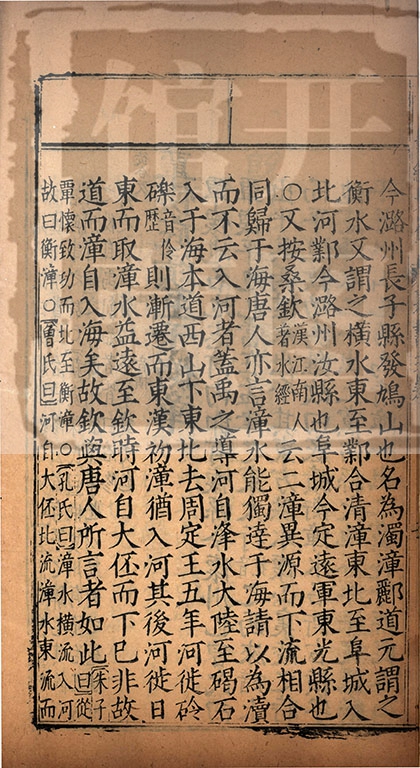 今潞州長子縣發鳩山也名為濁漳酈道元謂之
衡水又謂之橫水東至鄴合清漳東北至阜城入
北河鄴今潞州汝縣也阜城今定遠軍東光縣也
○又按桑欽漢江南人著水經云二漳異源而下流相合
同歸于海唐人亦言漳水能獨達于海請以為瀆
而不云入河者蓋禹之導河自洚水大陸至碣石
入于海本道西山下東北去周定王五年河徙砱
礫音伶歷則漸遷而東漢初漳猶入河其後河徙日
東而取漳水益遠至欽時河自大伾而下巳非故
道而漳自入海矣故欽與唐人所言者如此朱子曰從
覃懷致功而北至衡漳○孔氏曰漳水橫流入河
故曰衡漳○曾氏曰河自大伾北流漳水東流而